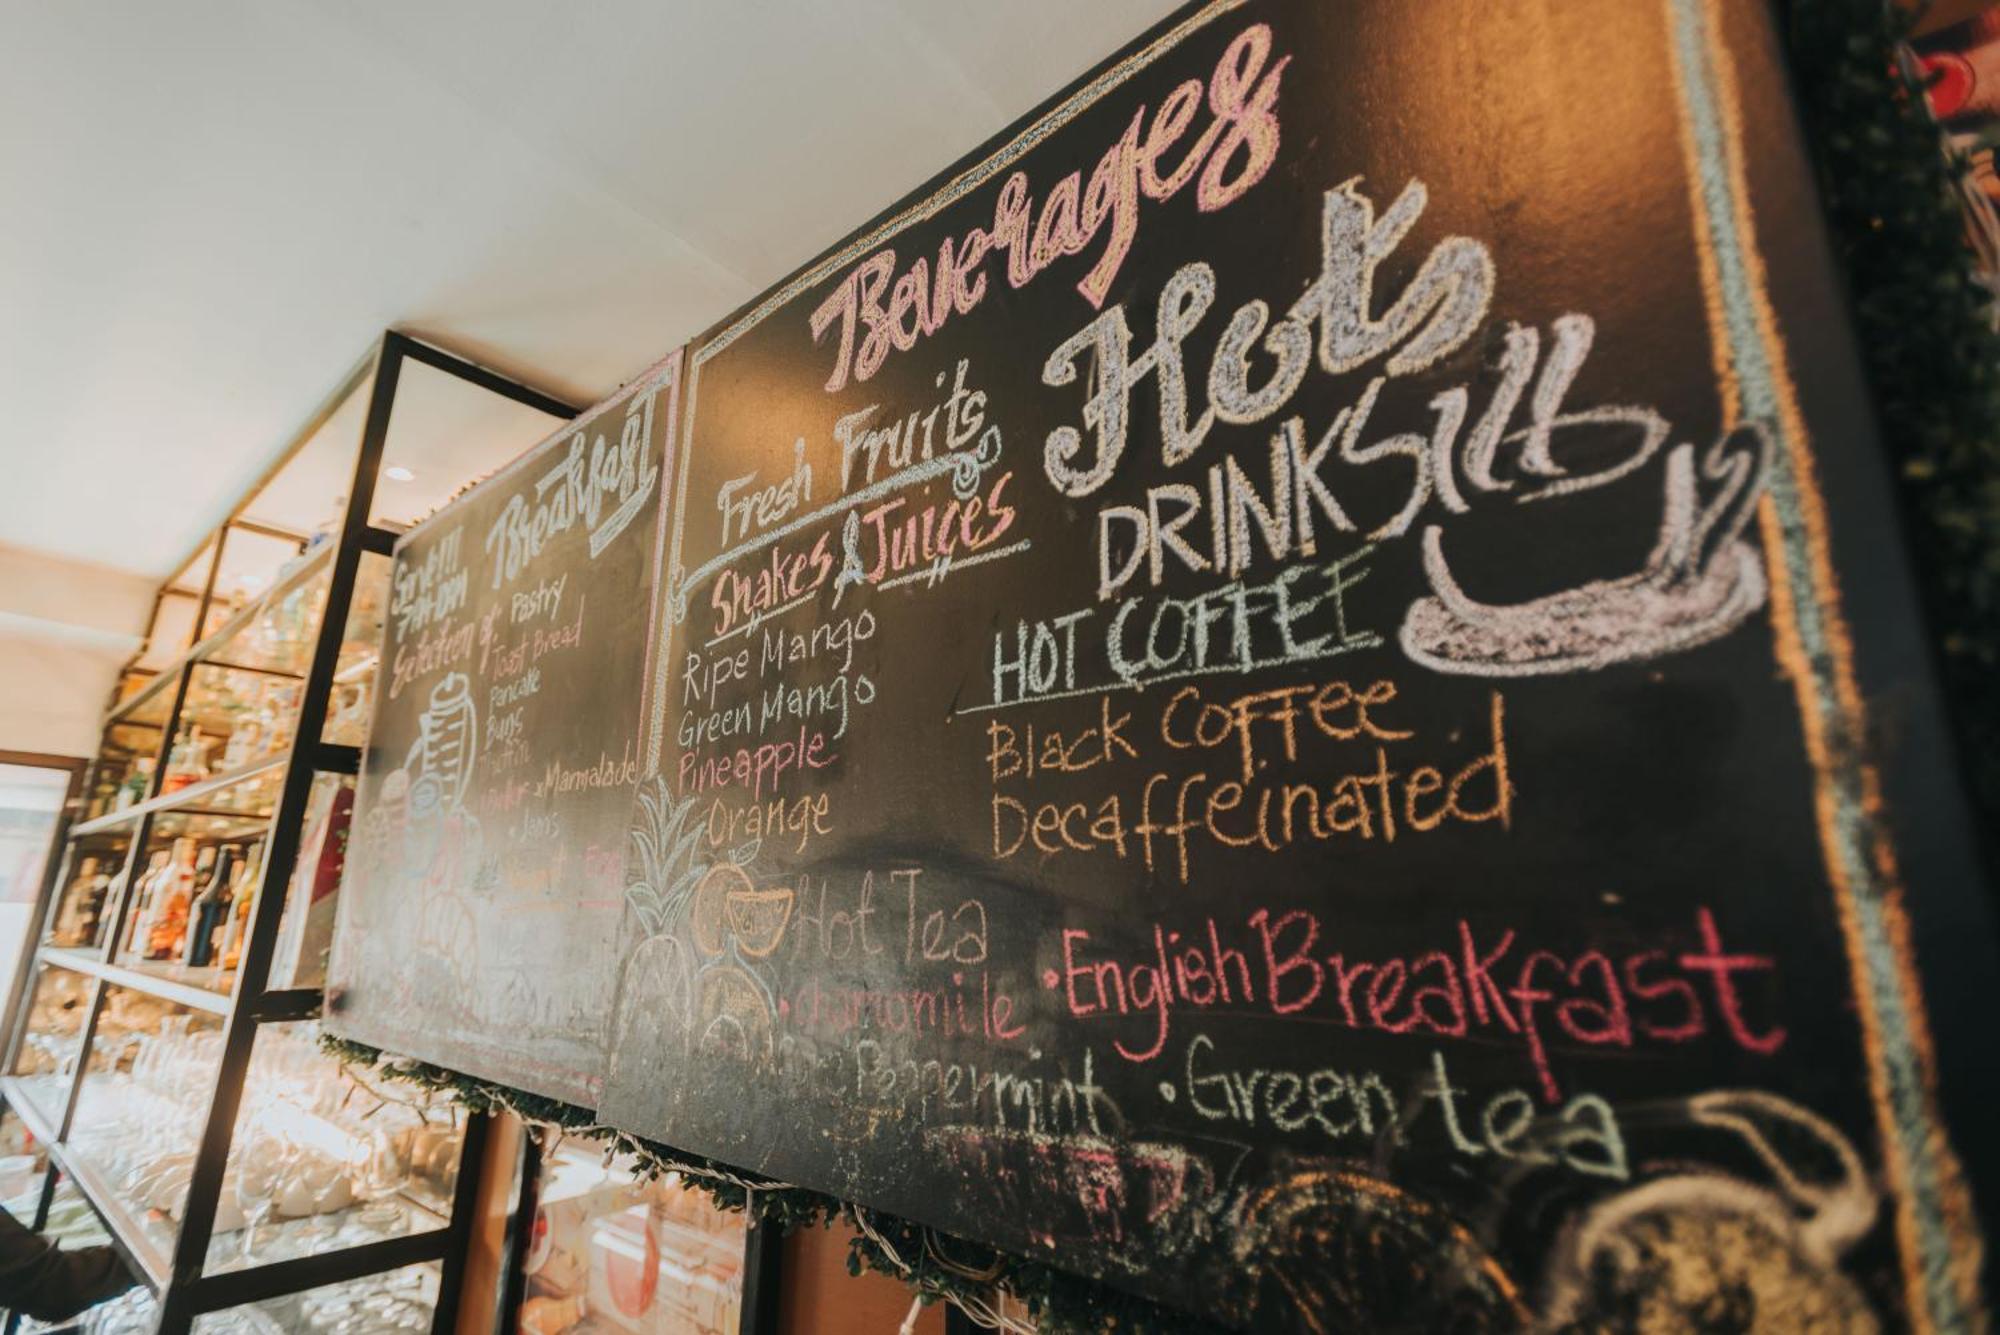 Breakfast
Serve!!!
Selection of:
Pastry
Toast Bread
Pancake
Buns
Marmalade
Jams
Beverages
Fresh Fruits
Shakes & Juices
Ripe Mango
Green Mango
Pineapple
Orange
Hots
DRINKS!!!
HOT COFFEE
Black Coffee
Decaffeinated
Hot Tea
• Chamomile
• English Breakfast
Peppermint
• Green tea